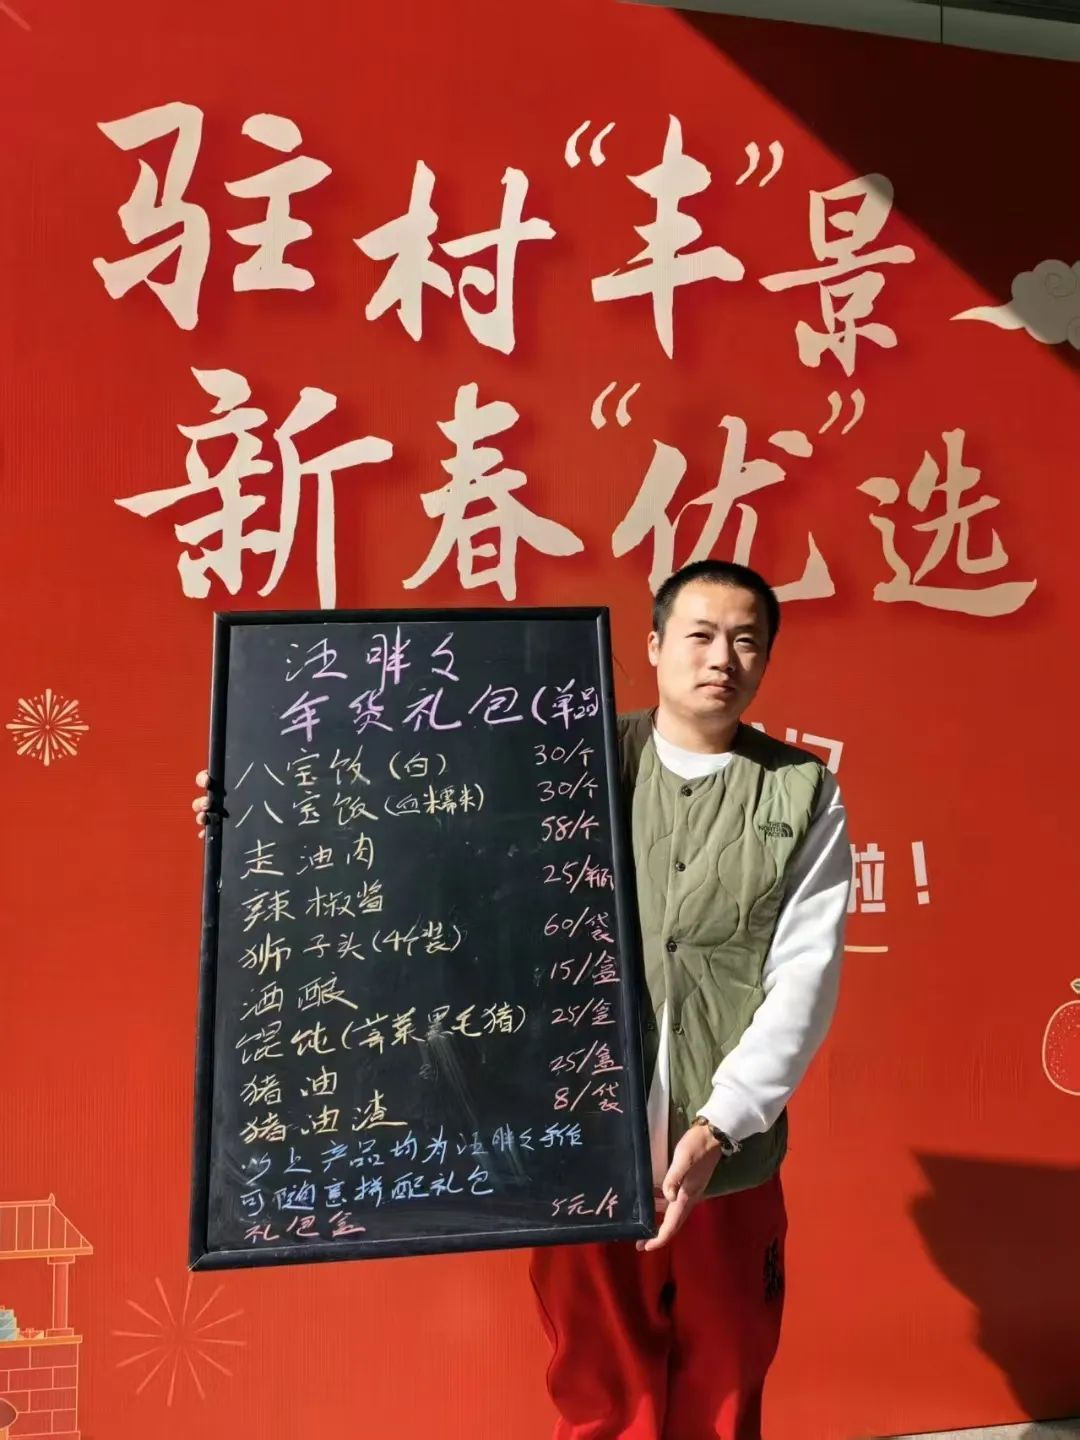 驻村“丰”景
新春“优”选
汪胖爻
年货礼包(单品)
八宝饭(白) 30/个
八宝饭(血糯米) 30/个
走油肉 58/个
辣椒酱 25/瓶
狮子头(4个装) 60/袋
酒酿 15/盒
馄饨(荠菜黑毛猪) 25/盒
猪油 25/盒
猪油渣 8/袋
以上产品均为汪胖爻手作
可随意拼配礼包
礼包盒 5元/个
THE
NORTH
FACE
啦!